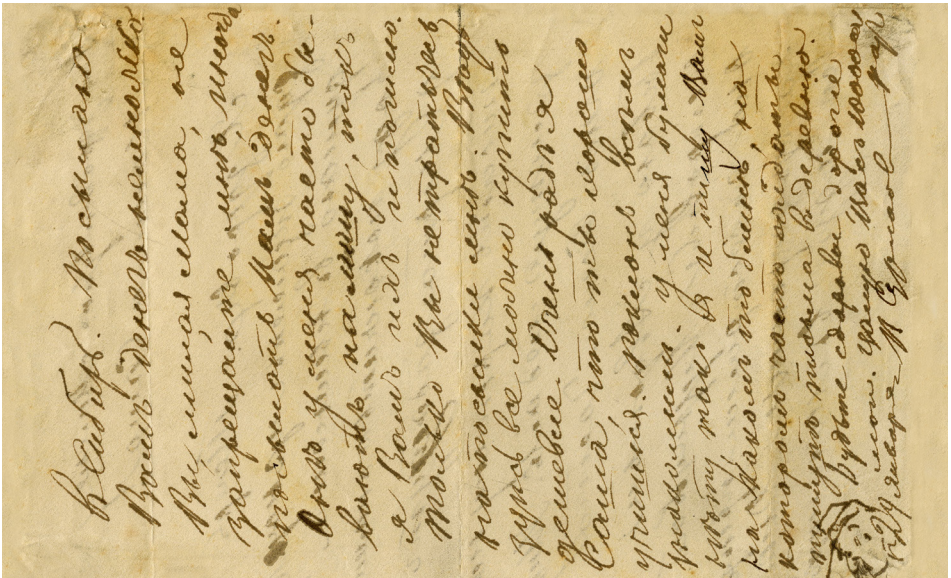 въ Сибирь. Посылаю
Вамъ денегъ немножко.
Вы милая мама, не
запрещайте мнѣ иногда
посылать Вамъ денегъ.
Онѣ у меня часто бы-
ваютъ на
я Вамъ ихъ и пошлю.
только Вы не тратьте
на посылки мнѣ. Вѣдь
здѣсь все можно купить
дешевле. Очень радъ я
Саша что ты хорошо
учишься. поклонъ всѣмъ
знакомымъ. у меня бумаги
нѣту такъ я и пишу Вамъ
на какомъ то бланкѣ, на
которомъ часто солдаты
пишутъ письма въ деревню.
Будьте здоровы дорогіе
мои. цѣлую Васъ
Января